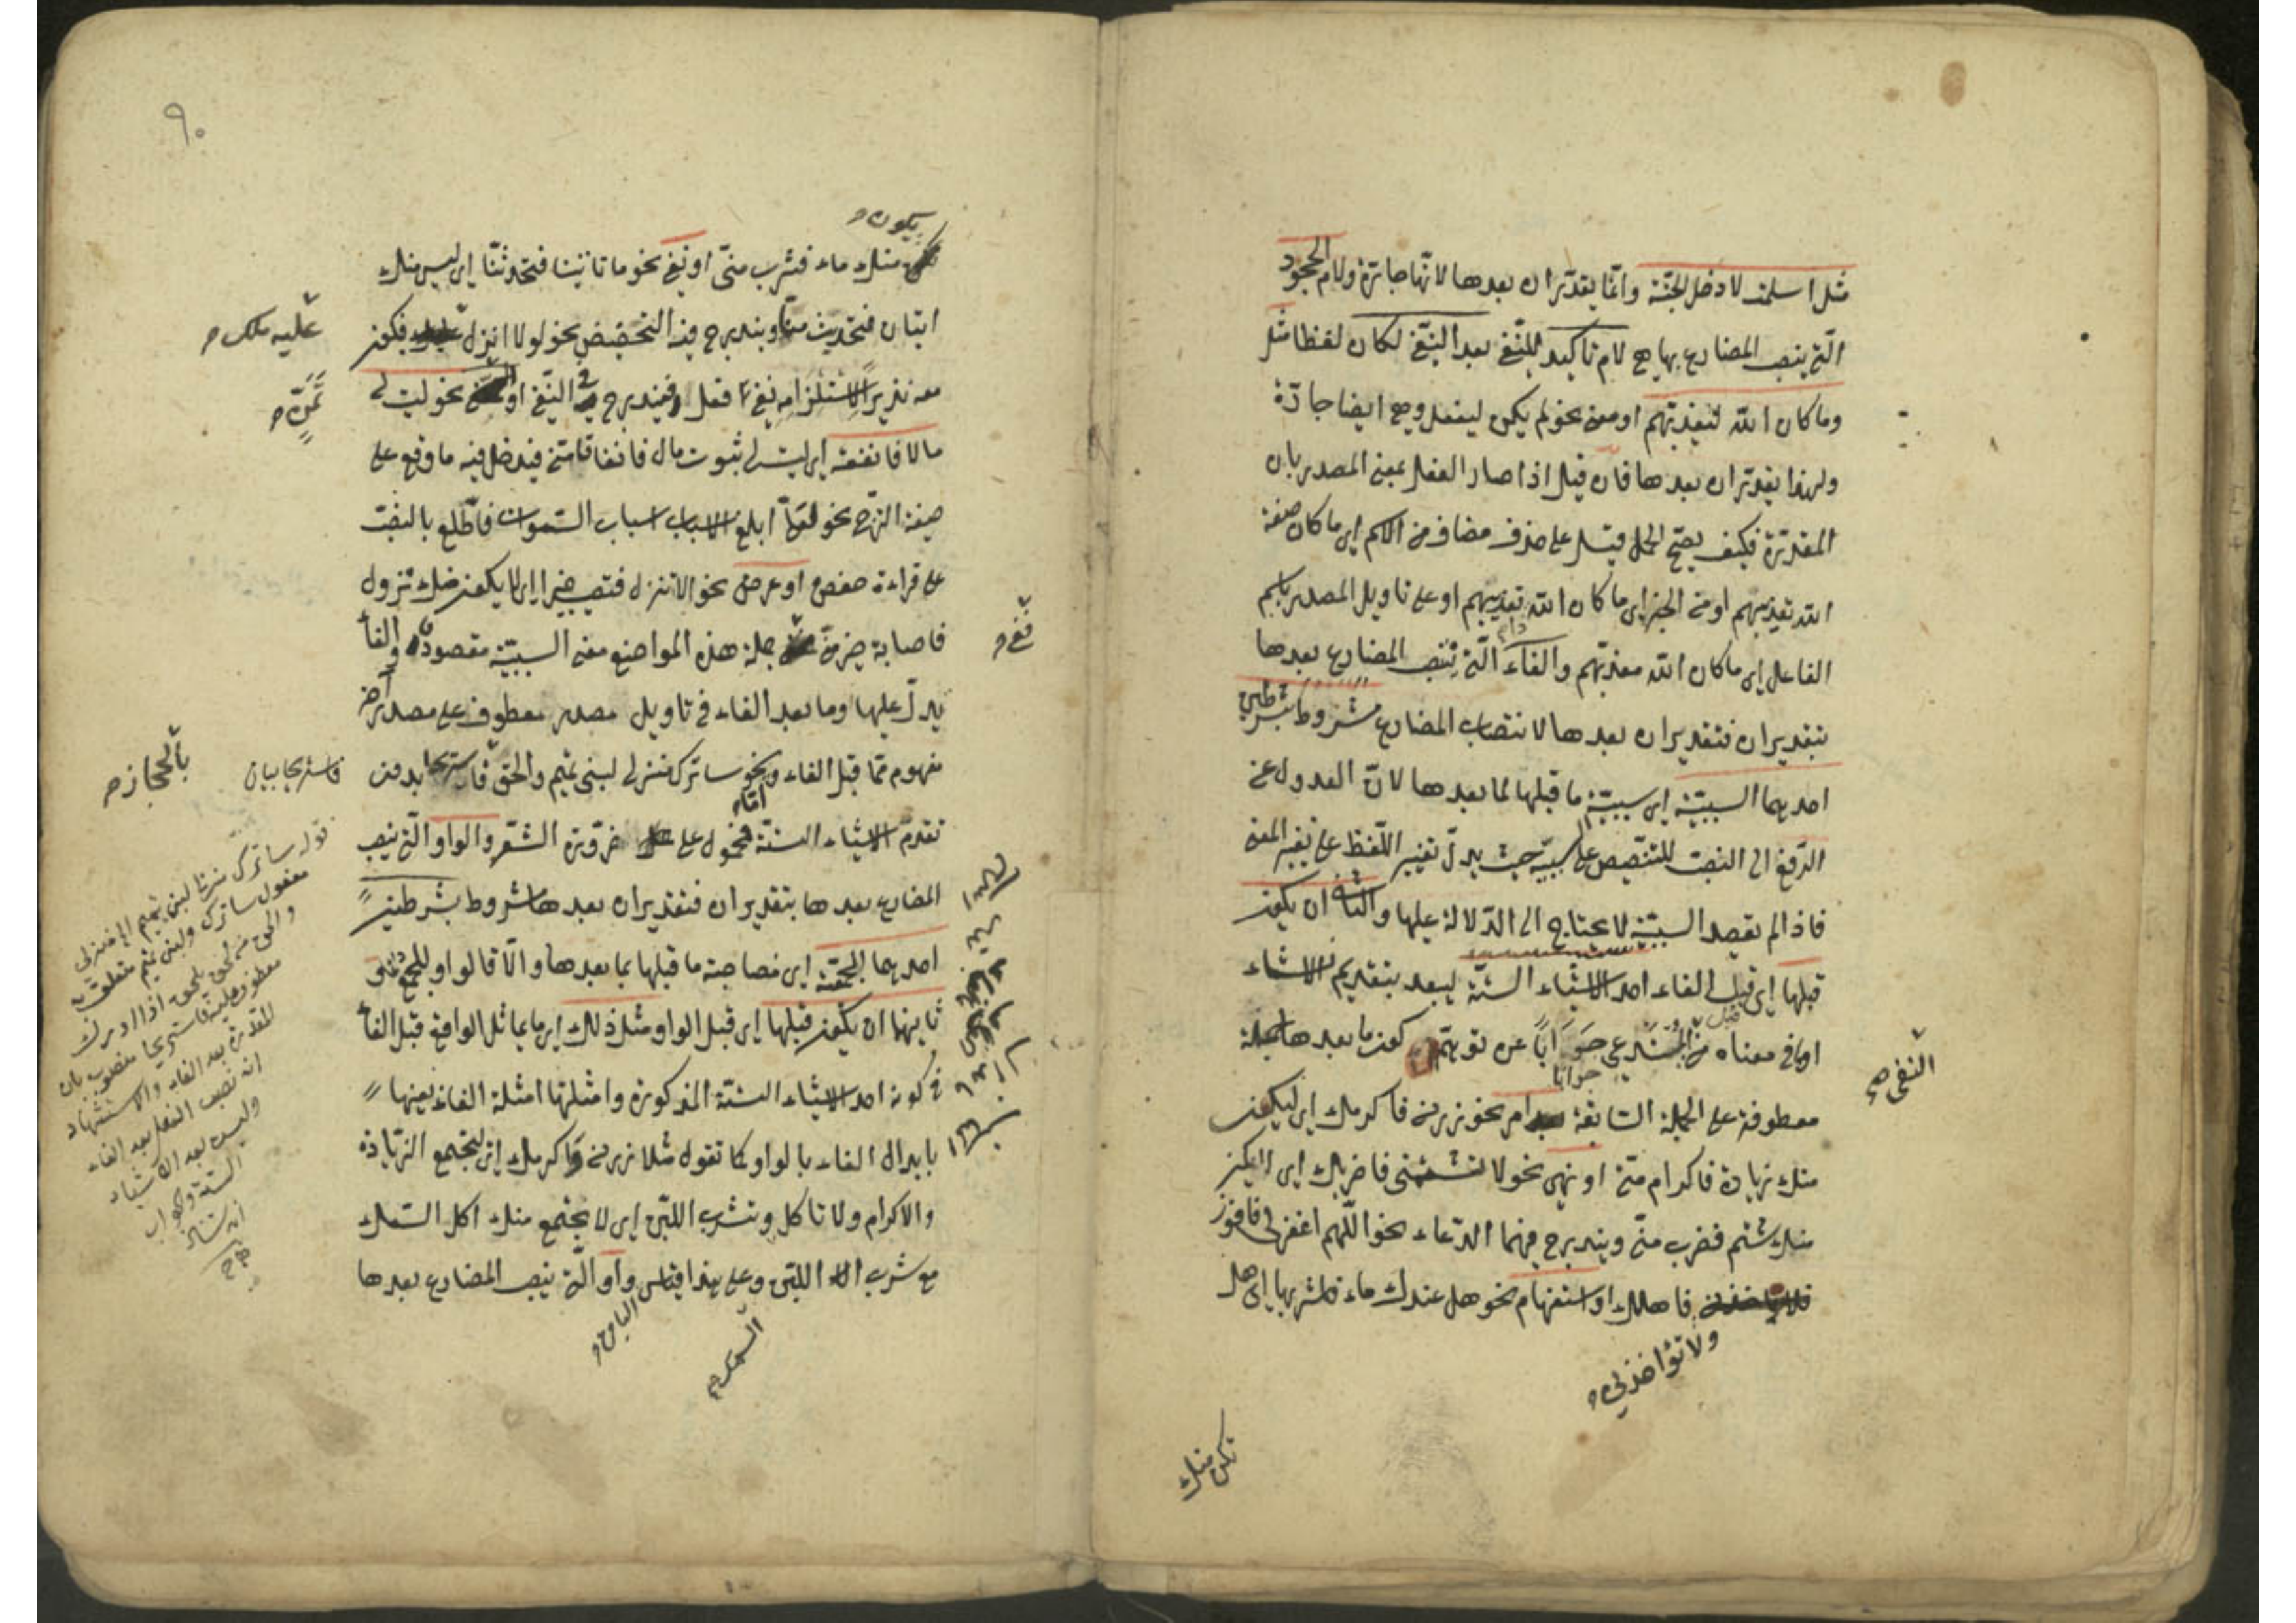 مثل اسلمت لادخل الجنّة وانّما يقدّر ان بعدها لانّها جارّة ولام الجحود
الّتى ينصب المضارع بها هى لام تأكيد للنّفى بعد النّفى لكان لفظا مثل
وما كان الله ليعذّبهم او معنى نحو لم يكن ليفعل وهى ايضا جارّة
ولهذا يقدّر ان بعدها فان قيل اذا صار الفعل بمعنى المصدر بان
المقدّرة فكيف يصحّ الحمل قيل على حذف مضاف من الاسم اى ما كان صفة
الله تعذيبهم او من الخبر اى ما كان الله تعذيبهم او على تاويل المصدر باسم
الفاعل اى ما كان الله معذّبهم والفاء الّتى تنصب المضارع بعدها
بتقدير ان فتقدير ان بعدها لانتصاب المضارع مشروط بشرطين
احديهما السببيّة اى سببيّة ما قبلها لما بعدها لانّ العدول عن
الرّفع الى النصب للتنصيص على السببيّة حيث يدلّ تغيير اللّفظ على تغيير المعنى
فاذا لم يقصد السببيّة لا يحتاج الى الدّلالة عليها والثانى ان يكون
قبلها اى قبل الفاء احد الاشياء الستّة ليبعد بتقديم الاشياء
او ما فى معناه من المستدعى جوابا عن توهّم كون ما بعدها جملة
جوابا
النفى صح
معطوفة على الجملة السّابقة امر نحو زرنى فاكرمك اى ليكن
منك زيارة فاكرام منّى او نهى نحو لا تشتمنى فاضربك اى لا يكن
منك شتم فضرب منّى ويندرج فيهما الدّعاء نحو اللّهم اغفر لى فافوز
فاهلك او استفهام نحو هل عندك ماء فاشربها اى هل
ولا تؤاخذنى
تكن منك
٩٠
يكون
منك ماء فشرب منّى او نفى نحو ما تأتينا فتحدثنّا اى ليس منك
اتيان فتحديث منّا ويندرج فيه التخضيض نحو لولا انزل فيكون
عليه ملك
معه نذيرا لاستلزامه نفى فعل فيندرج فى النّفى او نحو ليت لى
تمنّ
مالا فانفقه اى ليت لى ثبوت مال فانفاقا منّى فيدخل فيه ما وقع على
صيغة الترجّى نحو لعلّى ابلغ الاسباب اسباب السّموات فاطّلع بالنصب
على قراءة حفص او عرض نحو الا تنزل فتصيب خيرا اى الا يكون منك نزول
فاصابة خير منّى جملة هذه المواضع معنى السببيّة مقصودة والفاء
نفى
يدلّ عليها وما بعد الفاء فى تاويل مصدر معطوف على مصدر آخر
مفهوم ممّا قبل الفاء ونحو ساترك منزلى لبنى تميم والحق فاستريحا بدون
بالحجاز
فاستريحا بيان
امّا
تقدّم الاشياء الستّة فمحمول على ضرورة الشّعر والواو الّتى ينصب
المضارع بعدها بتقدير ان فتقدير ان بعدها مشروط بشرطين
احديهما الجمعيّة اى مصاحبة ما قبلها بما بعدها والّا قالواو للجمع دائما
ثانيهما ان يكون قبلها اى قبل الواو مثل ذلك اى ما يماثل الواقع قبل الفاء
فى كونه احد الاشياء الستّة المذكورة وامثلتها امثلة الفاء بعينها
بابدال الفاء بالواو كما تقول مثلا زرنى واكرمك اى ليجتمع الزيارة
والاكرام ولا تاكل وتشرب اللبن اى لا يجتمع منك اكل السّمك
مع شرب اللبن وعلى هذا فقس واو الّتى ينصب المضارع بعدها
السمك
قوله ساترك منزلى لبنى تميم
مفعول ساترك ولبنى تميم متعلق به
اذا ادرك
معطوف عليه فاستريحا منصوب بان
المقدرة بعد الفاء والاستشهاد
انه نصب الفعل بعد الفاء
وليس بعد الاشياء
الستة والجواب
انه شاذ